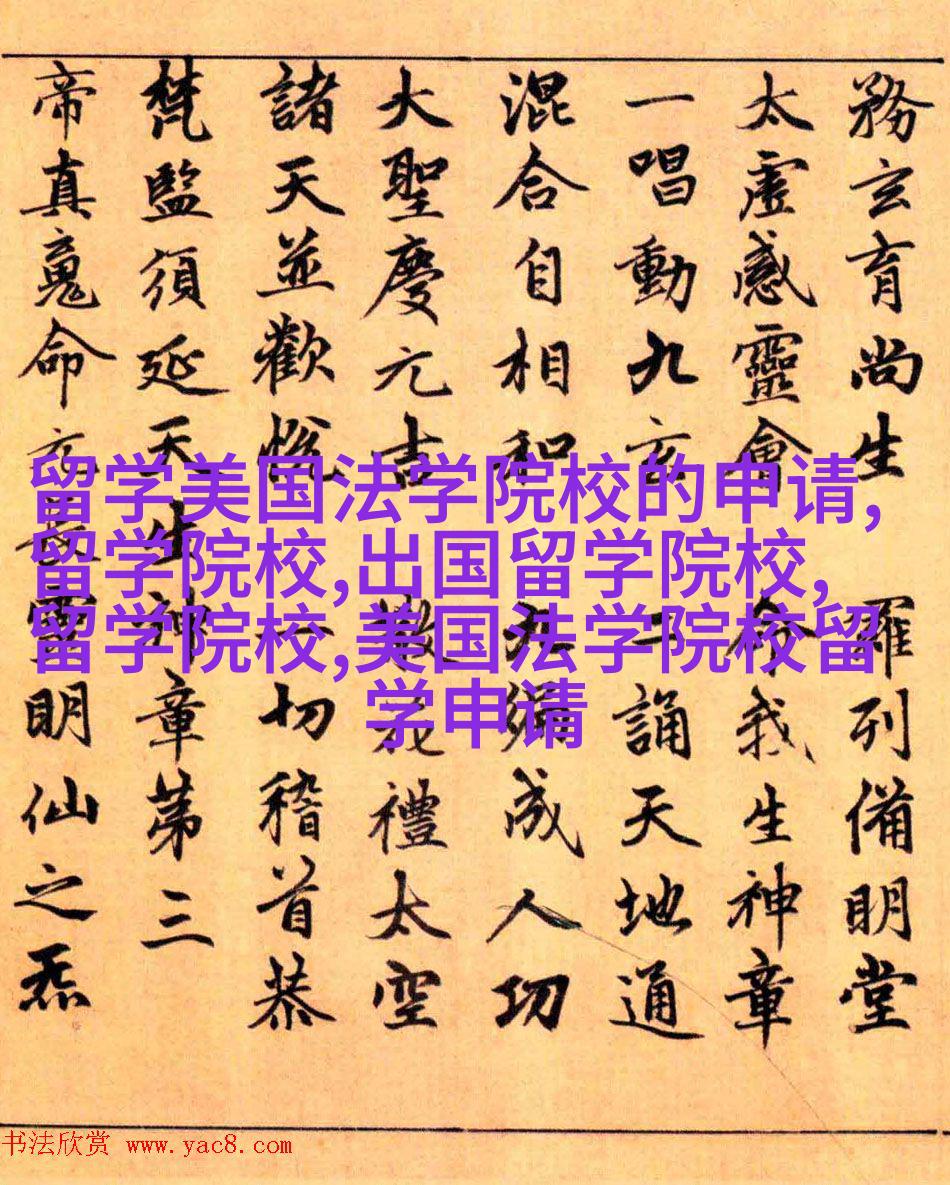 務玄育尚生 羅列備明堂
太虛感靈會 命我生神章
一唱動九玄 二誦天地通
混合自相和 九編成人功
大聖慶元吉 散花禮太空
諸天並歡悅 一切稽首恭
梵監須延天生神章第三
帝真魂命元長靈明仙之炁
留学美国法学院校的申请,
留学院校,出国留学院校,
留学院校,美国法学院校留
学申请
书法欣赏 www.yac8.com